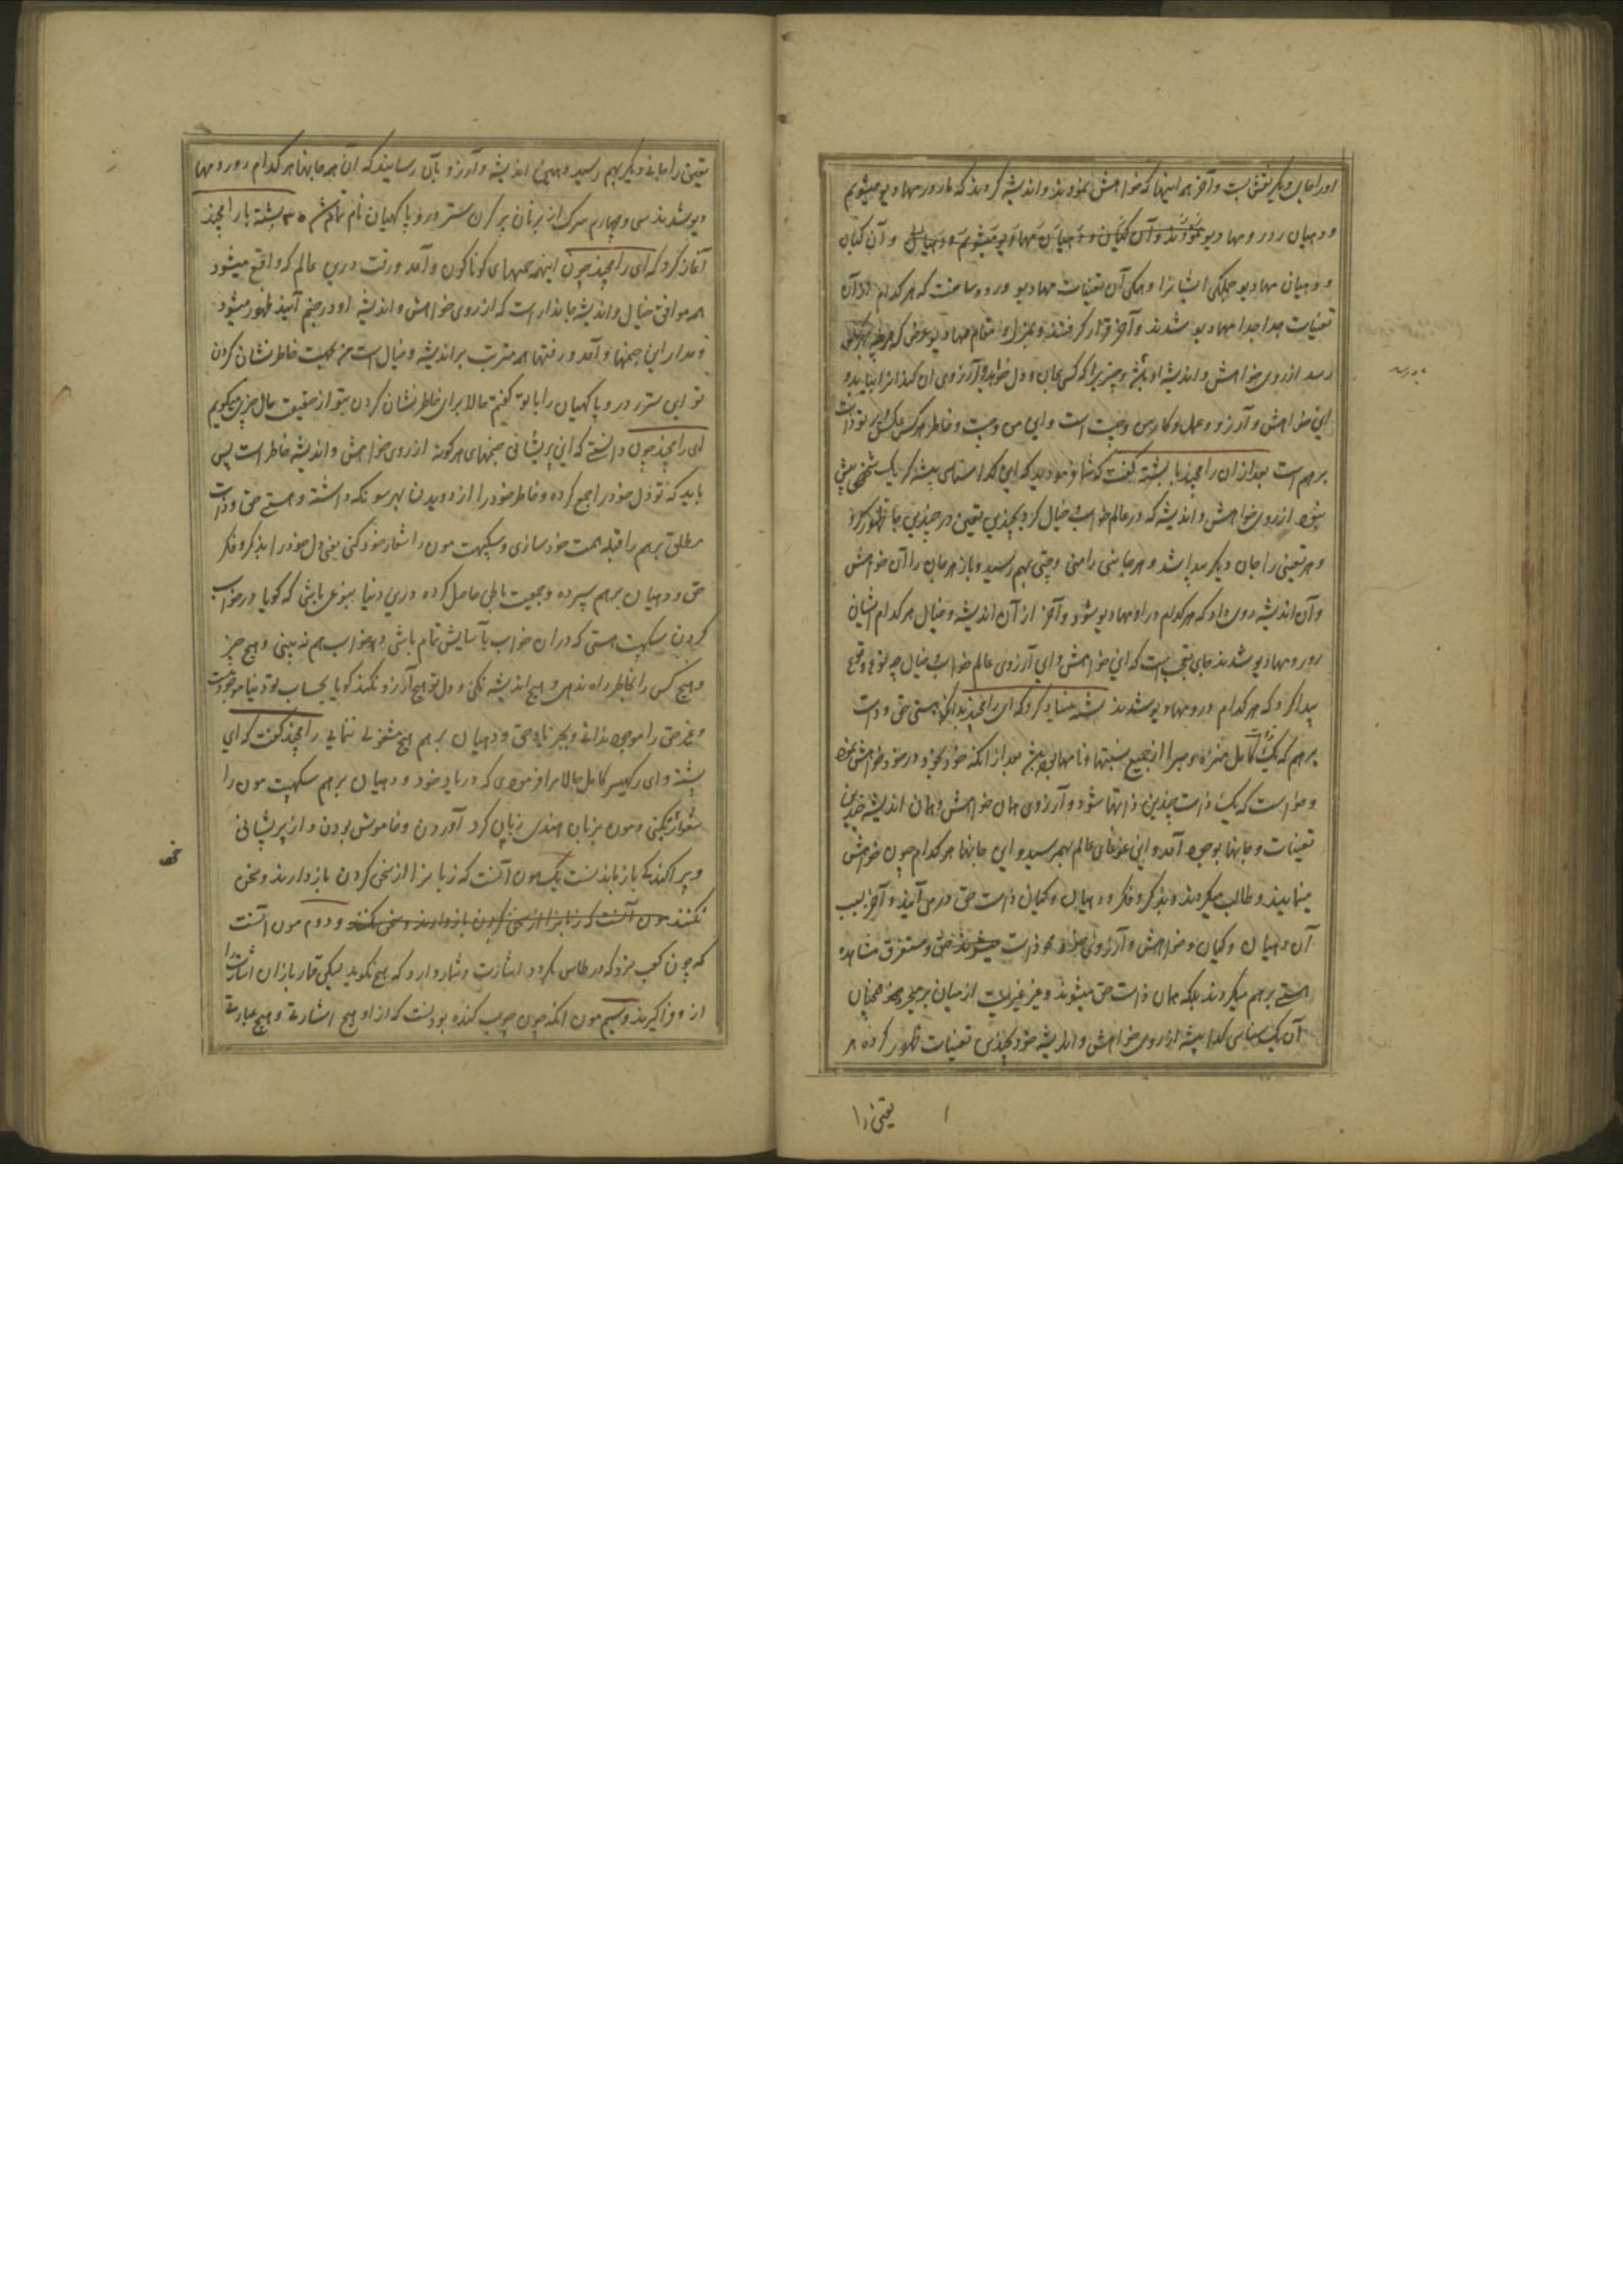 اورا جای دیگر نقش بست و آخر همه اینها که خواهش نمودند و اندیشه کردند که ما رودر مهادیو میشویم
و دهیان رودر مهادیو نمودند و آن گیان و دهیان مهادیو میشویم و دهیان و آن گیان
و دهیان مهادیو جملگی ایشانرا و همگی آن تعینات مهادیو و رودر ساخت که هر کدام ازان
تعینات جدا جدا مهادیو شدند و آخر قرار گرفتند و بمنزل و مقام مهادیو عوض که هر چه بهر کس
رسد از روی خواهش و اندیشه او باشد و چیزیرا که کسی بجان و دل خواهد و آرزوی آن کند آنرا بیابد و
این خواهش و آرزو و عمل و کار من و چت است و این من و چت و خاطر هر کس عکس پرتو ذات
برهم است بعد ازان رامچند با بشسته گفت که شما فرمودید که این گدا سناسی پیشه که یک شخص بیش
نبود از روی خواهش و اندیشه که در عالم خواب و خیال کرد بچندین تعین در چندین جا ظهور کرد
و هر تعینی را جان دیگر پیدا شد و هر جانی را منی و چتی بهم رسید و باز هر جان را آن خواهش
و آن اندیشه روی داد که هر کدام رودر و مهادیو شود و آخر از آن اندیشه و خیال هر کدام ایشان
رودر و مهادیو شدند جای تعجب است که این خواهش و این آرزوی عالم خواب و خیال چه نوع وقوع
پیدا کرد که هر کدام رودر و مهادیو شدند بشسته بنیاد کرد که ای رامچند بدانکه هستی حق و ذات
برهم که یک ذات کامل منزه و مبرا از جمیع نسبتها و نامها بود بعد از آنکه خود بخود در خود خواهش نمود
و خواست که یک ذات چندین ذاتها شود و آرزوی همان خواهش و همان اندیشه چندین
تعینات و جانها بوجود آمد و این غوغای عالم بهم رسید و این جانها هر کدام چون خواهش
مینمایند و طالب میگردند و بذکر و فکر و دهیان و گیان ذات حق در می آیند و آخر بسبب
آن دهیان و گیان و خواهش و آرزوی خود محو ذات میشوند حق و مستغرق مشاهده
هستی برهم میگردند بلکه همان ذات حق میشوند و غیر غیریت از میان برمیخیزد همچنان
آن یک سناسی گدا پیشه از روی خواهش و اندیشه خود بچندین تعینات ظهور کرده هر
تعینی را
تعینی را جانی دیگر بهم رسید و همین اندیشه و آرزو بآن رسانید که آن همه جانها هر کدام رودر و مها
دیو شدند سی و چهارم سرگ از نربان پرکرن ستر ورودپاکهیان نام تمام شد ۳۵ بشسته با رامچند
آغاز کرد که ای رامچند چون اینهمه جنمهای گوناگون و آمد و رفت درین عالم که واقع میشود
همه موافق خیال و اندیشه جاندار است که از روی خواهش و اندیشه او در جنم آینده ظهور میشود
و مدار این جنمها و آمد و رفتها همه مترتب بر اندیشه و خیال است من بجهت خاطر نشان کردن
تو این ستر ردروپاکهیان را با تو گفتم حالا برای خاطر نشان کردن بتو از حقیقت حال چیزی میگویم
ای رامچند چون دانستی که این پریشانی جنمهای هر گونه از روی خواهش و اندیشه خاطر است پس
باید که تو دل خود را جمع کرده و خاطر خود را از دویدن بهر سو نگه داشته و هستی حق و ذات
مطلق برهم را قبله همت خود سازی و سکهپت مون را شعار خود کنی یعنی دل خود را بذکر و فکر
حق و دهیان برهم سپرده و جمعیت باطن حاصل کرده درین دنیا بنوعی باشی که گویا در خواب
کردن سکهپت هستی که دران خواب بآسایش تمام باشی و خواب هم نه بینی و هیچ چیز
و هیچ کس را بخاطر راه ندهی و هیچ اندیشه نکنی و دل تو هیچ آرزو نکند گویا بحساب تو دنیا موجود نیست
و غیر حق را موجود ندانی و بجز یاد حق و دهیان برهم هیچ مشغولی ننمائی رامچند گفت که ای
بشسته و ای رکهیسر کامل حالا مرا فرمودی که در یاد خود و دهیان برهم سکهپت مون را
شعار بکنی و مون بزبان هندی زبان گرد آوردن و خاموش بودن و از پریشانی
و پراکندگی باز ماندنست یک مون آنست که زبانرا از سخن کردن باز دارند و سخن
نکنند مون آنست که زبانرا از سخن کردن باز دارند و سخن نکنند و دوم مون آنست
که چون کعب نرد که در طاس بگردد اشارت و شمار دارد که هیچ نگوید لیکن قمار بازان اشارت را
ازو فراگیرند و سیم مون آنکه چون چوب کنده بودنست که ازو هیچ اشارتی و هیچ عبارتی